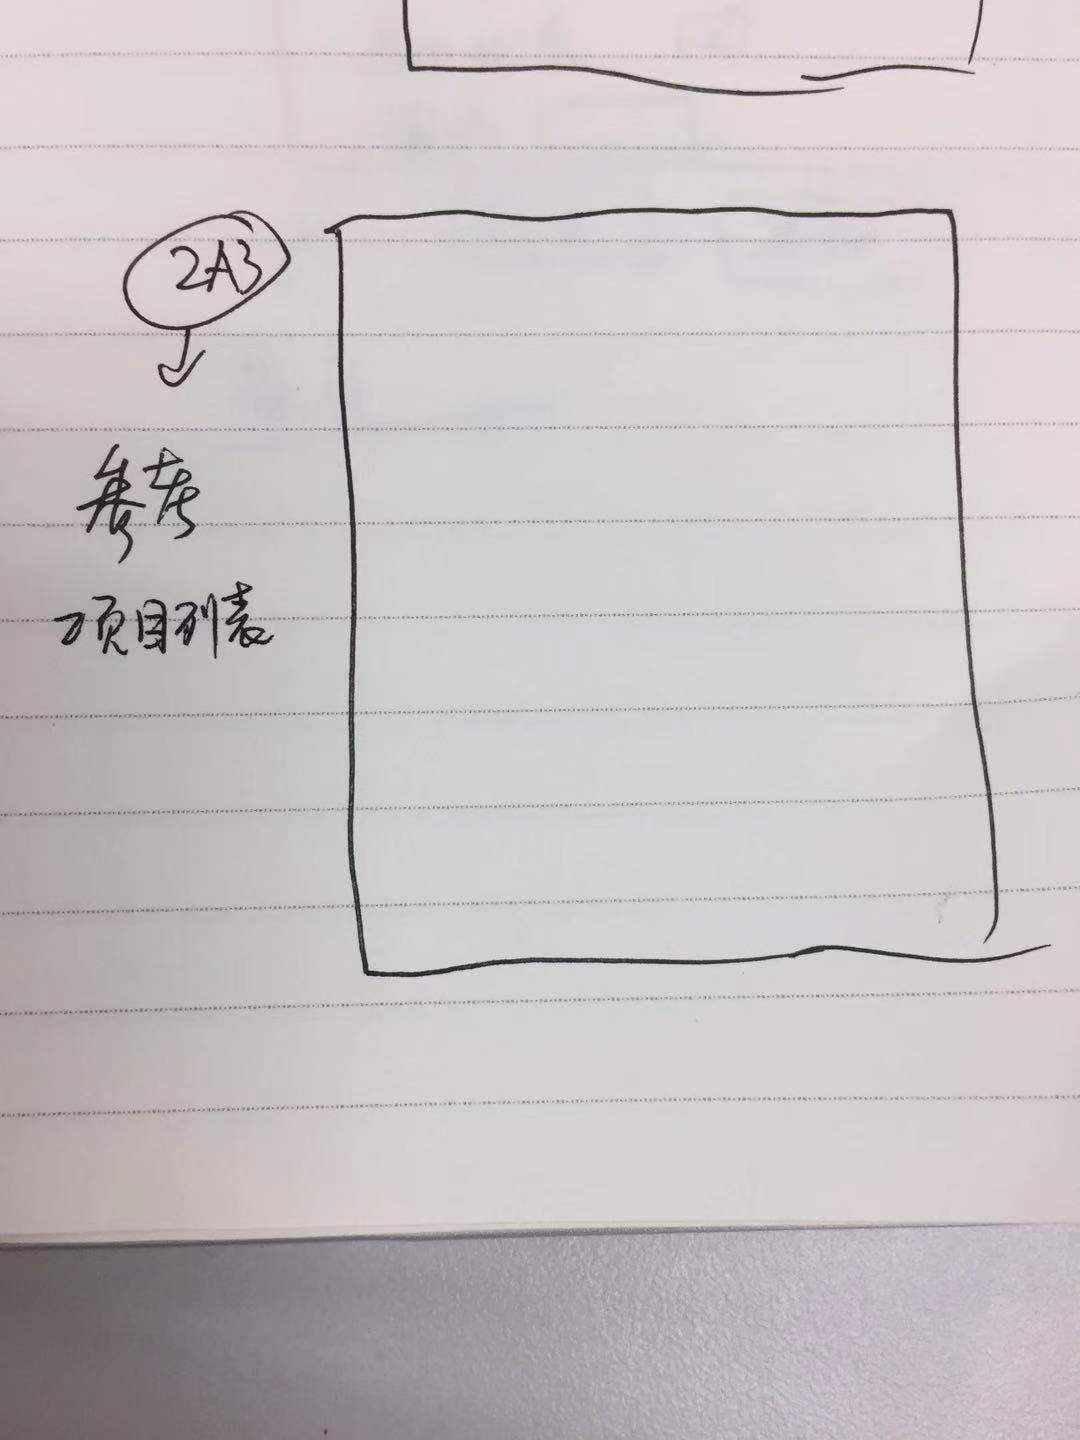 2A3
参考
项目列表